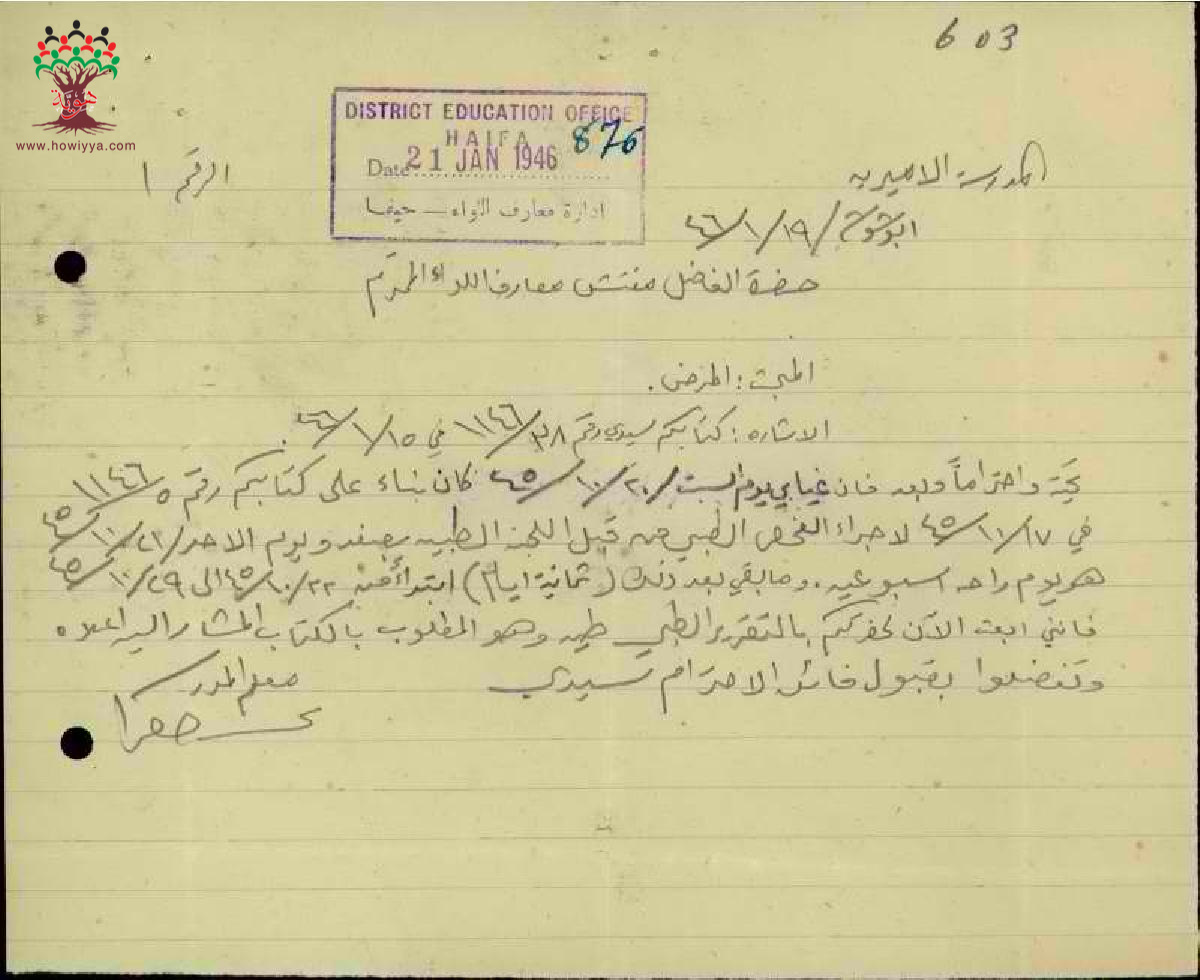 603
هوية
www.howiyya.com
DISTRICT EDUCATION OFFICE
HAIFA
876
Date 21 JAN 1946
ادارة معارف اللواء – حيفا
المدرسة الاميريه
الرقم ١
ابوشوشه / ١٩ / ١ / ٤٦
حضرة الفاضل مفتش معارف اللواء المحترم
المبحث : المرض .
الاشاره : كتابكم سيدي رقم ٣٨ / ١١٤٦ في ١٥ / ١ / ٤٦ .
تحية واحتراماً وبعد فان غيابي يوم السبت / ٢٠ / ١٠ / ٤٥ كان بناء على كتابكم رقم ٥ / ١١٤٦
في ١٧ / ١٠ / ٤٥ لاجراء الفحص الطبي من قبل اللجنة الطبيه بصفد ويوم الاحد / ٢١ / ١٠ / ٤٥
هو يوم راحه اسبوعيه . وما بقي بعد ذلك ( ثمانية ايام ) ابتدأ من ٢٢ / ١٠ / ٤٥ الى ٢٩ / ١٠ / ٤٥
فانني ابعث الآن لحضرتكم بالتقرير الطبي طيه وهو المطلوب بالكتاب المشار اليه اعلاه
وتفضلوا بقبول فائق الاحترام سيدي
معلم المدرسة